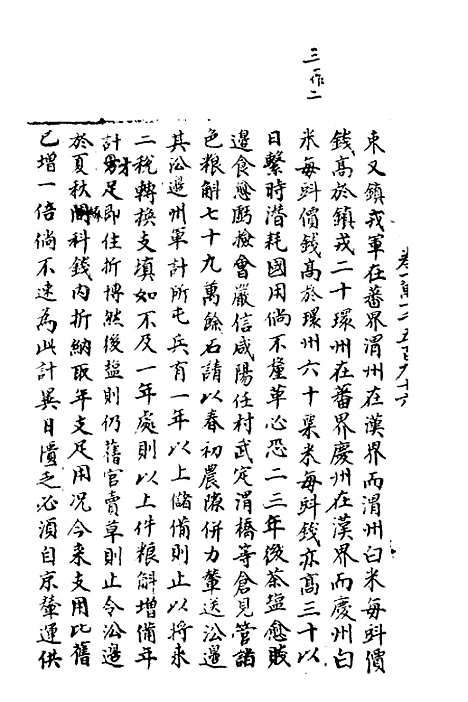 三一作二
卷一萬一千五百九十六
東又鎮戎軍在蕃界渭州在漢界而渭州白米每㪷價
錢高於鎮戎二十環州在蕃界慶州在漢界而慶州白
米每㪷價錢高於環州六十粟米每㪷錢亦高三十以
日繫時潛耗國用倘不釐革必恐二三年後茶鹽愈賤
邊食愈虧檢會嚴信咸陽任村武定渭橋等倉見管諸
色粮斛七十九萬餘石請以春初農隙併力輦送沿邊
其沿邊州軍計所屯兵有一年以上儲備則止以將來
二稅轉換支填如不及一年處則以上件粮斛增備年
計才足即住折博然後鹽則仍舊官賣草則止令沿邊
於夏秋科錢內折納取年支足用況今來支用比舊
已增一倍倘不速為此計異日匱乏必須自京輦運供